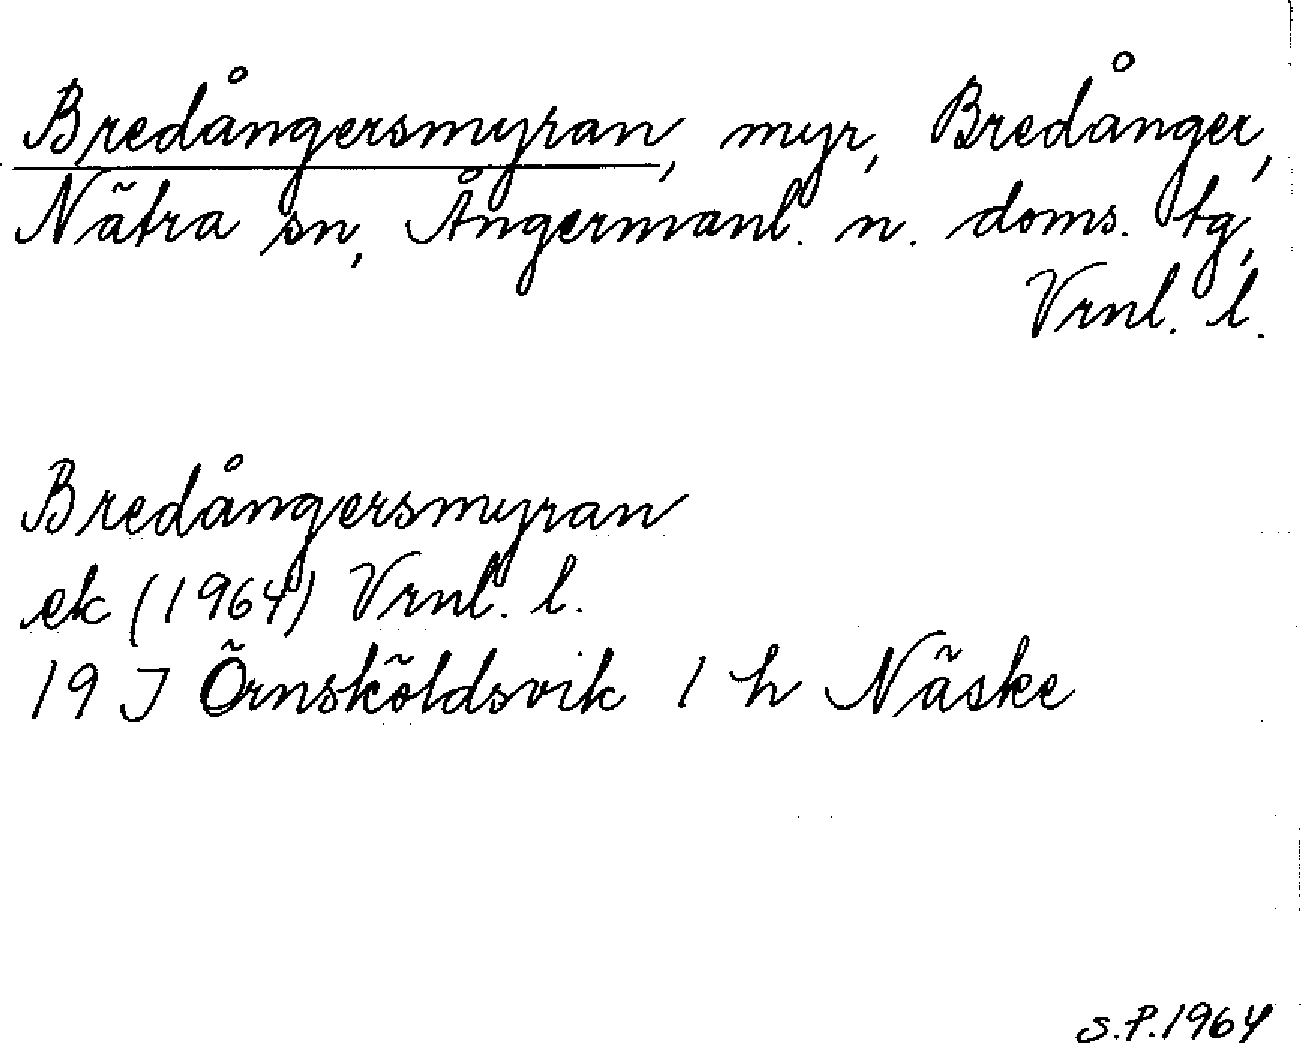 Bredångersmyran, myr, Bredånger,
Nätra sn, Ångermanl. n. doms. tg,
Vrnl. l.
Bredångersmyran
ek (1964) Vrnl. l.
19 J Örnsköldsvik 1 h Näske
S.P. 1964